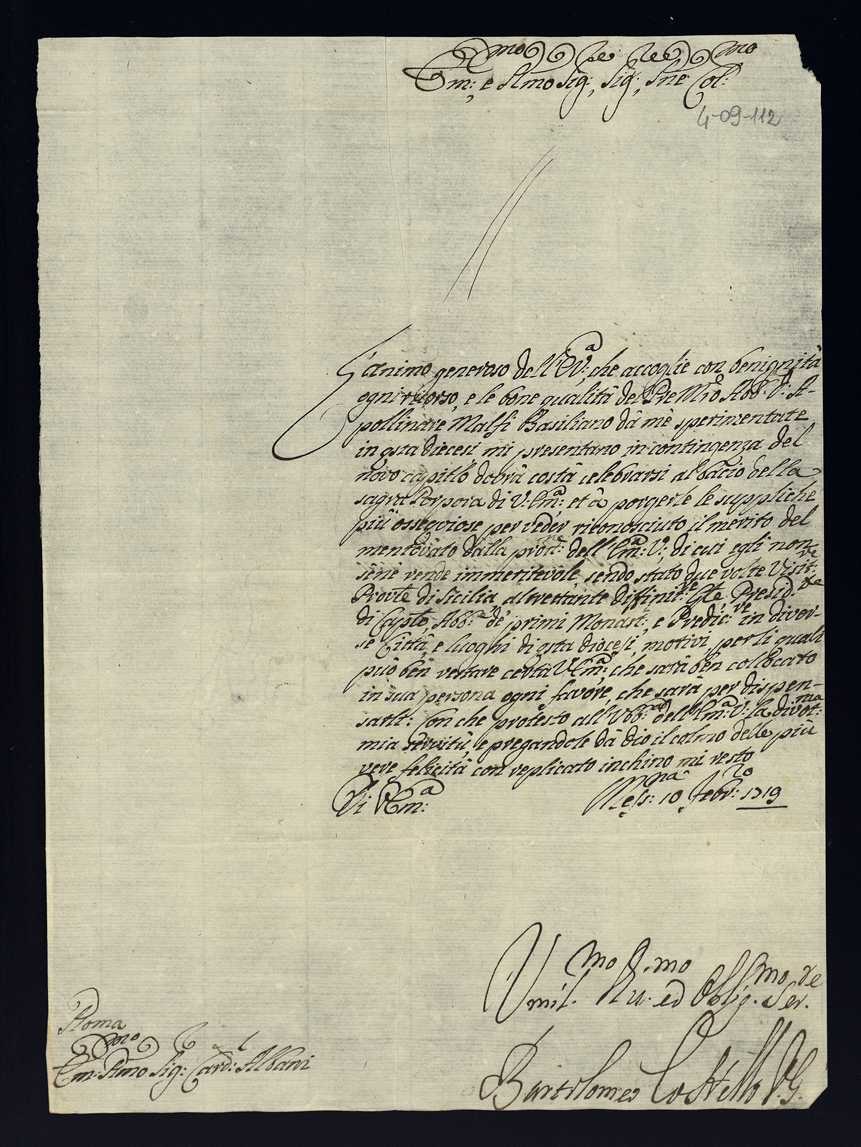 Em:mo e Rmo Sig:re, Sig:re, Pne Col:mo
4-09-112
L'animo generoso dell'E.V:a, che accoglie con benignità
ogni ricorso, e le bone qualità del Pre Mro Abb: D: A-
pollinare Malfi Basiliano dà mè sperimentate
in qsta diecesi mi presentano in contingenza del
novo capitlo dovrà costà celebrarsi al bacio della
sagra Porpora di V. Em:a et à porgerle le suppliche
più ossequiose per veder riconosciuto il merito del
mentovato dalla prote: dell'Em:a V: di cui egli non
sene rende immeritevole, sendo stato due volte Visit:re
Provle di Sicilia altrettante Diffinit:re Gle Presid:te
di Caplo, Abb:e de primi Monast:ri e Predic:re in diver-
se Città, e luoghi di qsta diocesi, motivi, per li quali
può ben restare certa V. Em:a, che sarà ben collocato
in sua persona ogni favore, che sarà per dispen-
sarli: Con che protesto all' dell'Em:a V: la divot:ma
mia servitù, e pregandole dà Dio il colmo delle più
vere felicità con replicato inchino mi resto
Di V. Em:a
Mess:na 10 Febr:o 1719
Umil:mo Di:mo ed Oblig:mo Ser:re
Bartolomeo Costelli V. G.
Roma
Em:mo Rmo Sig:re Card:l Albani